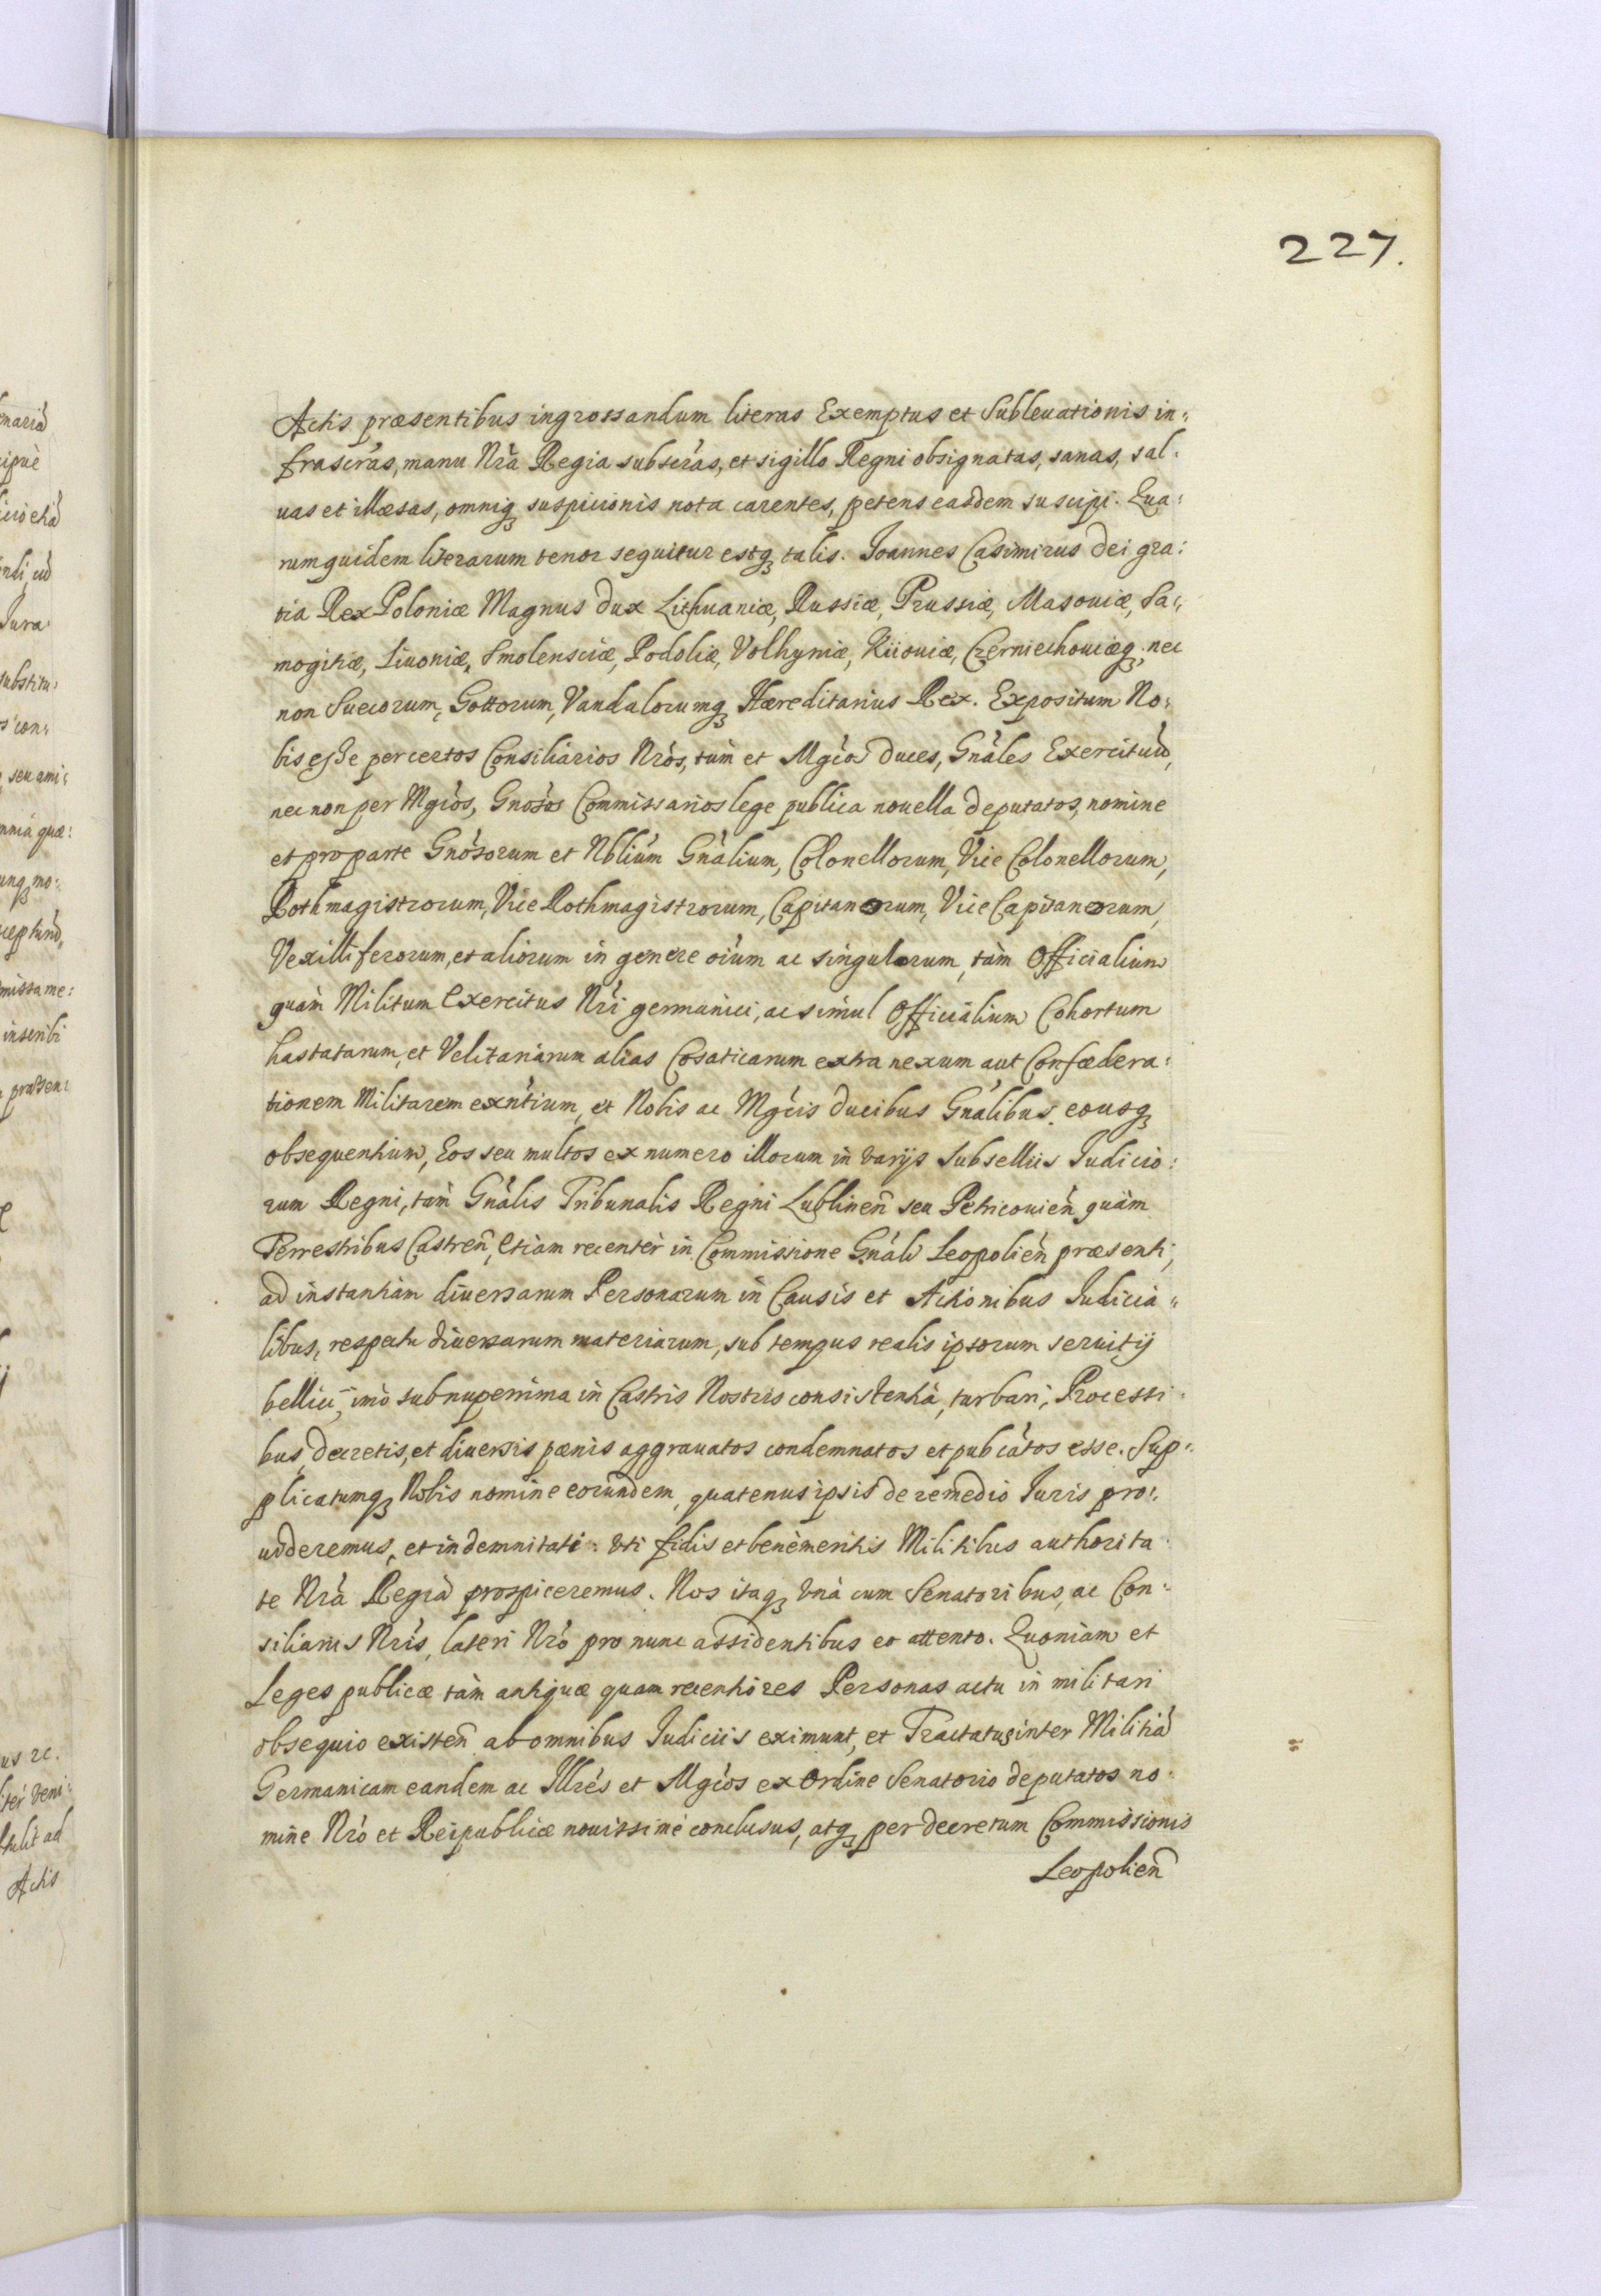 227.
Actis præsentibus ingrossandum literas Exemptus et Subleuationis in:
frascr̃as, manu Nr̃a Regia subscr̃as, et sigillo Regni obsignatas, sanas, sal.
uas et illæsas, omniq₃ suspicionis nota carentes, petens easdem suscipi. Qua:
rum quidem literarum tenor sequitur estq₃ talis. Joannes Casimirus Dei gra:
tia Rex Poloniæ Magnus Dux Lithuaniæ, Russiæ, Prussiæ, Masouiæ, Sa:
mogitiæ, Liuoniæ, Smolensciæ, Podoliæ, Volhyniæ, Kiiouiæ, Czerniechouiæq₃, nec
non Suecorum, Gottorum, Vandalorumq₃ Hæreditarius Rex. Expositum No:
bis esse per certos Consiliarios Nr̃os, tum et Mgc̃os Duces, Gñales Exercituũ,
nec non per Mgc̃os, Gñosos Commissarios lege publica nouella deputatos, nomine
et pro parte Gñosorum et Nblium Gñalium, Colonellorum, Vice Colonellorum,
Rothmagistrorum, Vice Rothmagistrorum, Capitaneorum, Vice Capitaneorum,
Vexilliferorum, et aliorum in genere oium ac singulorum, tàm Officialium
quàm Militum Exercitus Nr̃i germanici, ac simul Officialium Cohortum
hastatarum, et Velitariarum alias Cosaticarum extra nexum aut Confœdera:
tionem Militarem exñtium, et Nobis ac Mgc̃is Ducibus Gñalibus eousq₃
obsequentium, Eos seu multos ex numero illorum in varijs Subselliis Judicio:
rum Regni, tàm Gñalis Tribunalis Regni Lublineñ seu Petricouieñ quàm
Terrestribus Castreñ, Etiam recentèr in Commissione Gñali Leopolieñ præsenti,
ad instantiam diuersarum Personarum in Causis et Actionibus Judicia:
libus, respectu diuersarum materiarum, sub tempus realis ipsorum seruitij
bellici, imò sub nuperrima in Castris Nostris consistentia, turbari, Processi:
bus, decretis, et diuersis pœnis aggrauatos condemnatos et pubcãtos esse. Sup:
plicatumq₃ Nobis nomine eorundem, quatenus ipsis de remedio Juris pro:
uideremus, et indemnitati uti fidis et benèmeritis Militibus authorita:
te Nr̃a Regiã prospiceremus. Nos itaq₃ unà cum Senatoribus, ac Con:
siliarijs Nr̃is, lateri Nr̃o pro nunc assidentibus eo attento. Quoniam et
Leges publicæ tàm antiquæ quam recentiores Personas actu in militari
obsequio existeñ ab omnibus Judiciis eximunt, et Tractatus inter Militiã
Germanicam eandem ac Illrẽs et Mgc̃os ex Ordine Senatorio deputatos no:
mine Nr̃o et Reipublicæ nouissimè conclusus, atq₃ per decretum Commissionis
Leopolieñ